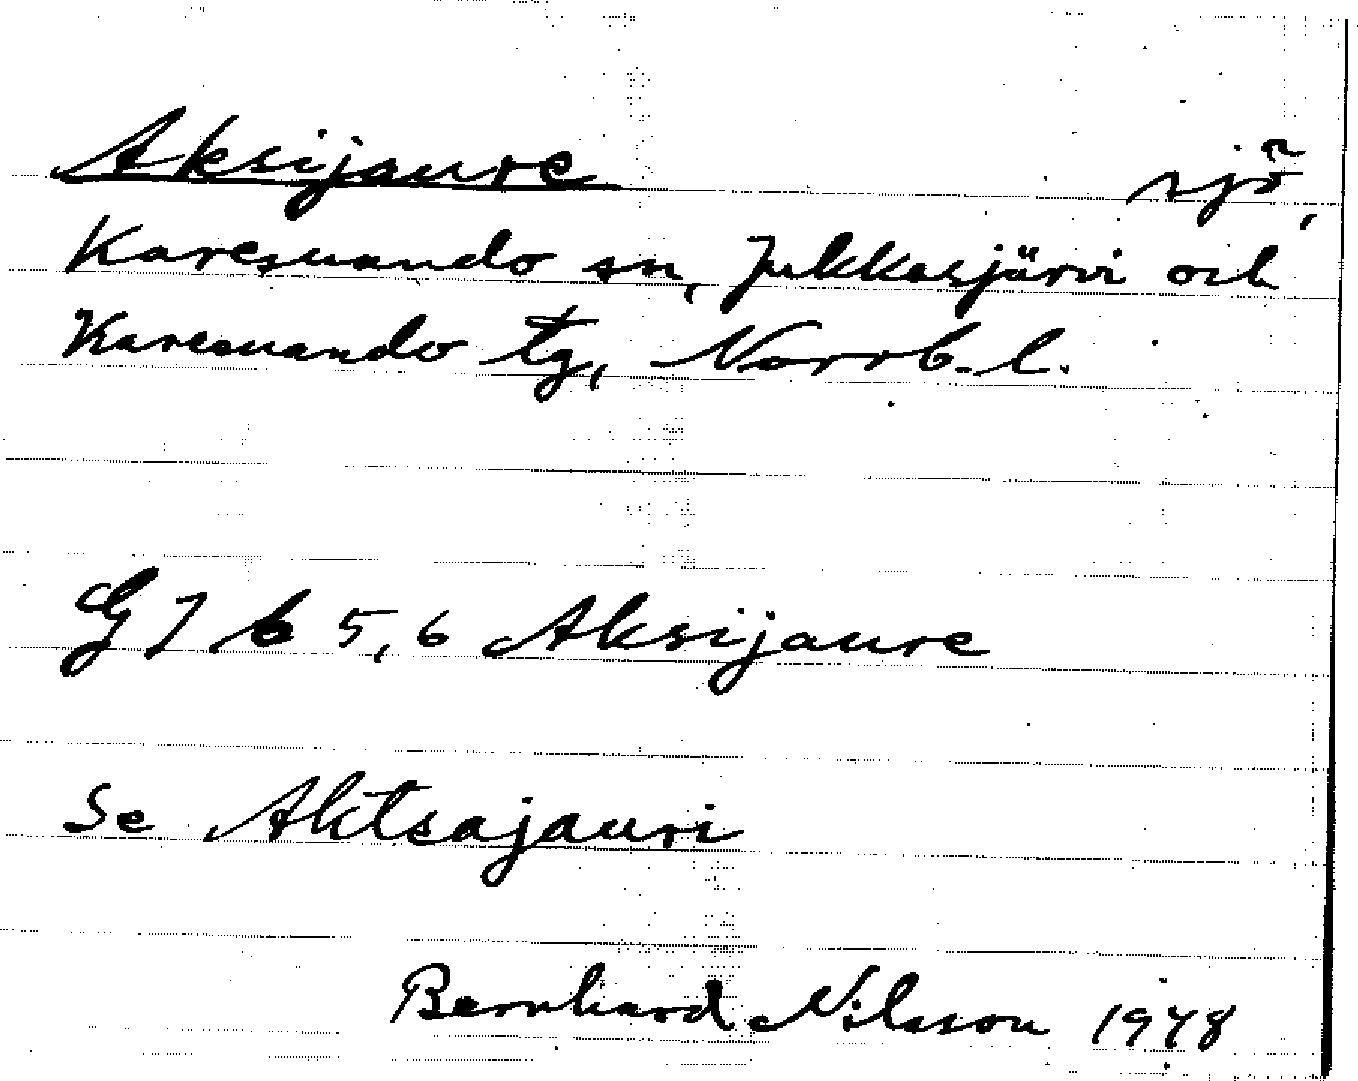 Aksijaure sjö,
Karesuando sn, Jukkasjärvi och
Karesuando tg, Norrb. l.
G 7 b 5, 6 Aksijaure
Se Aktsajauri
Bernhard Nilsson 1948